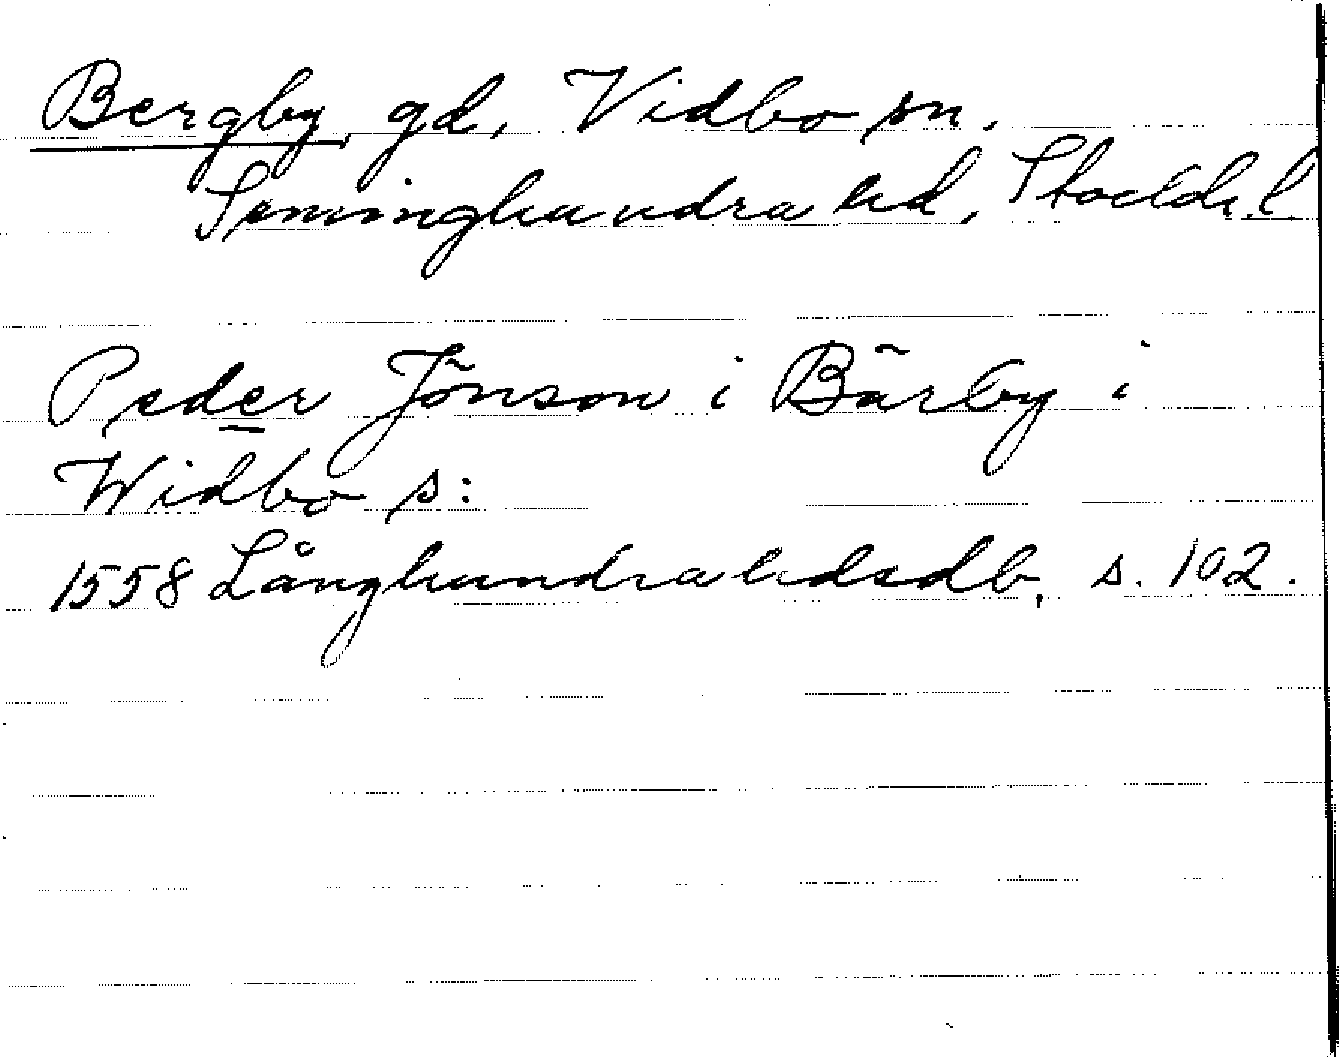 Bergby, gd, Vidbo sn.
Seminghundra hd, Stockh. l.
Peder Jönson i Bärby i
Widbo s:
1558 Långhundra hdsdb, s. 102.